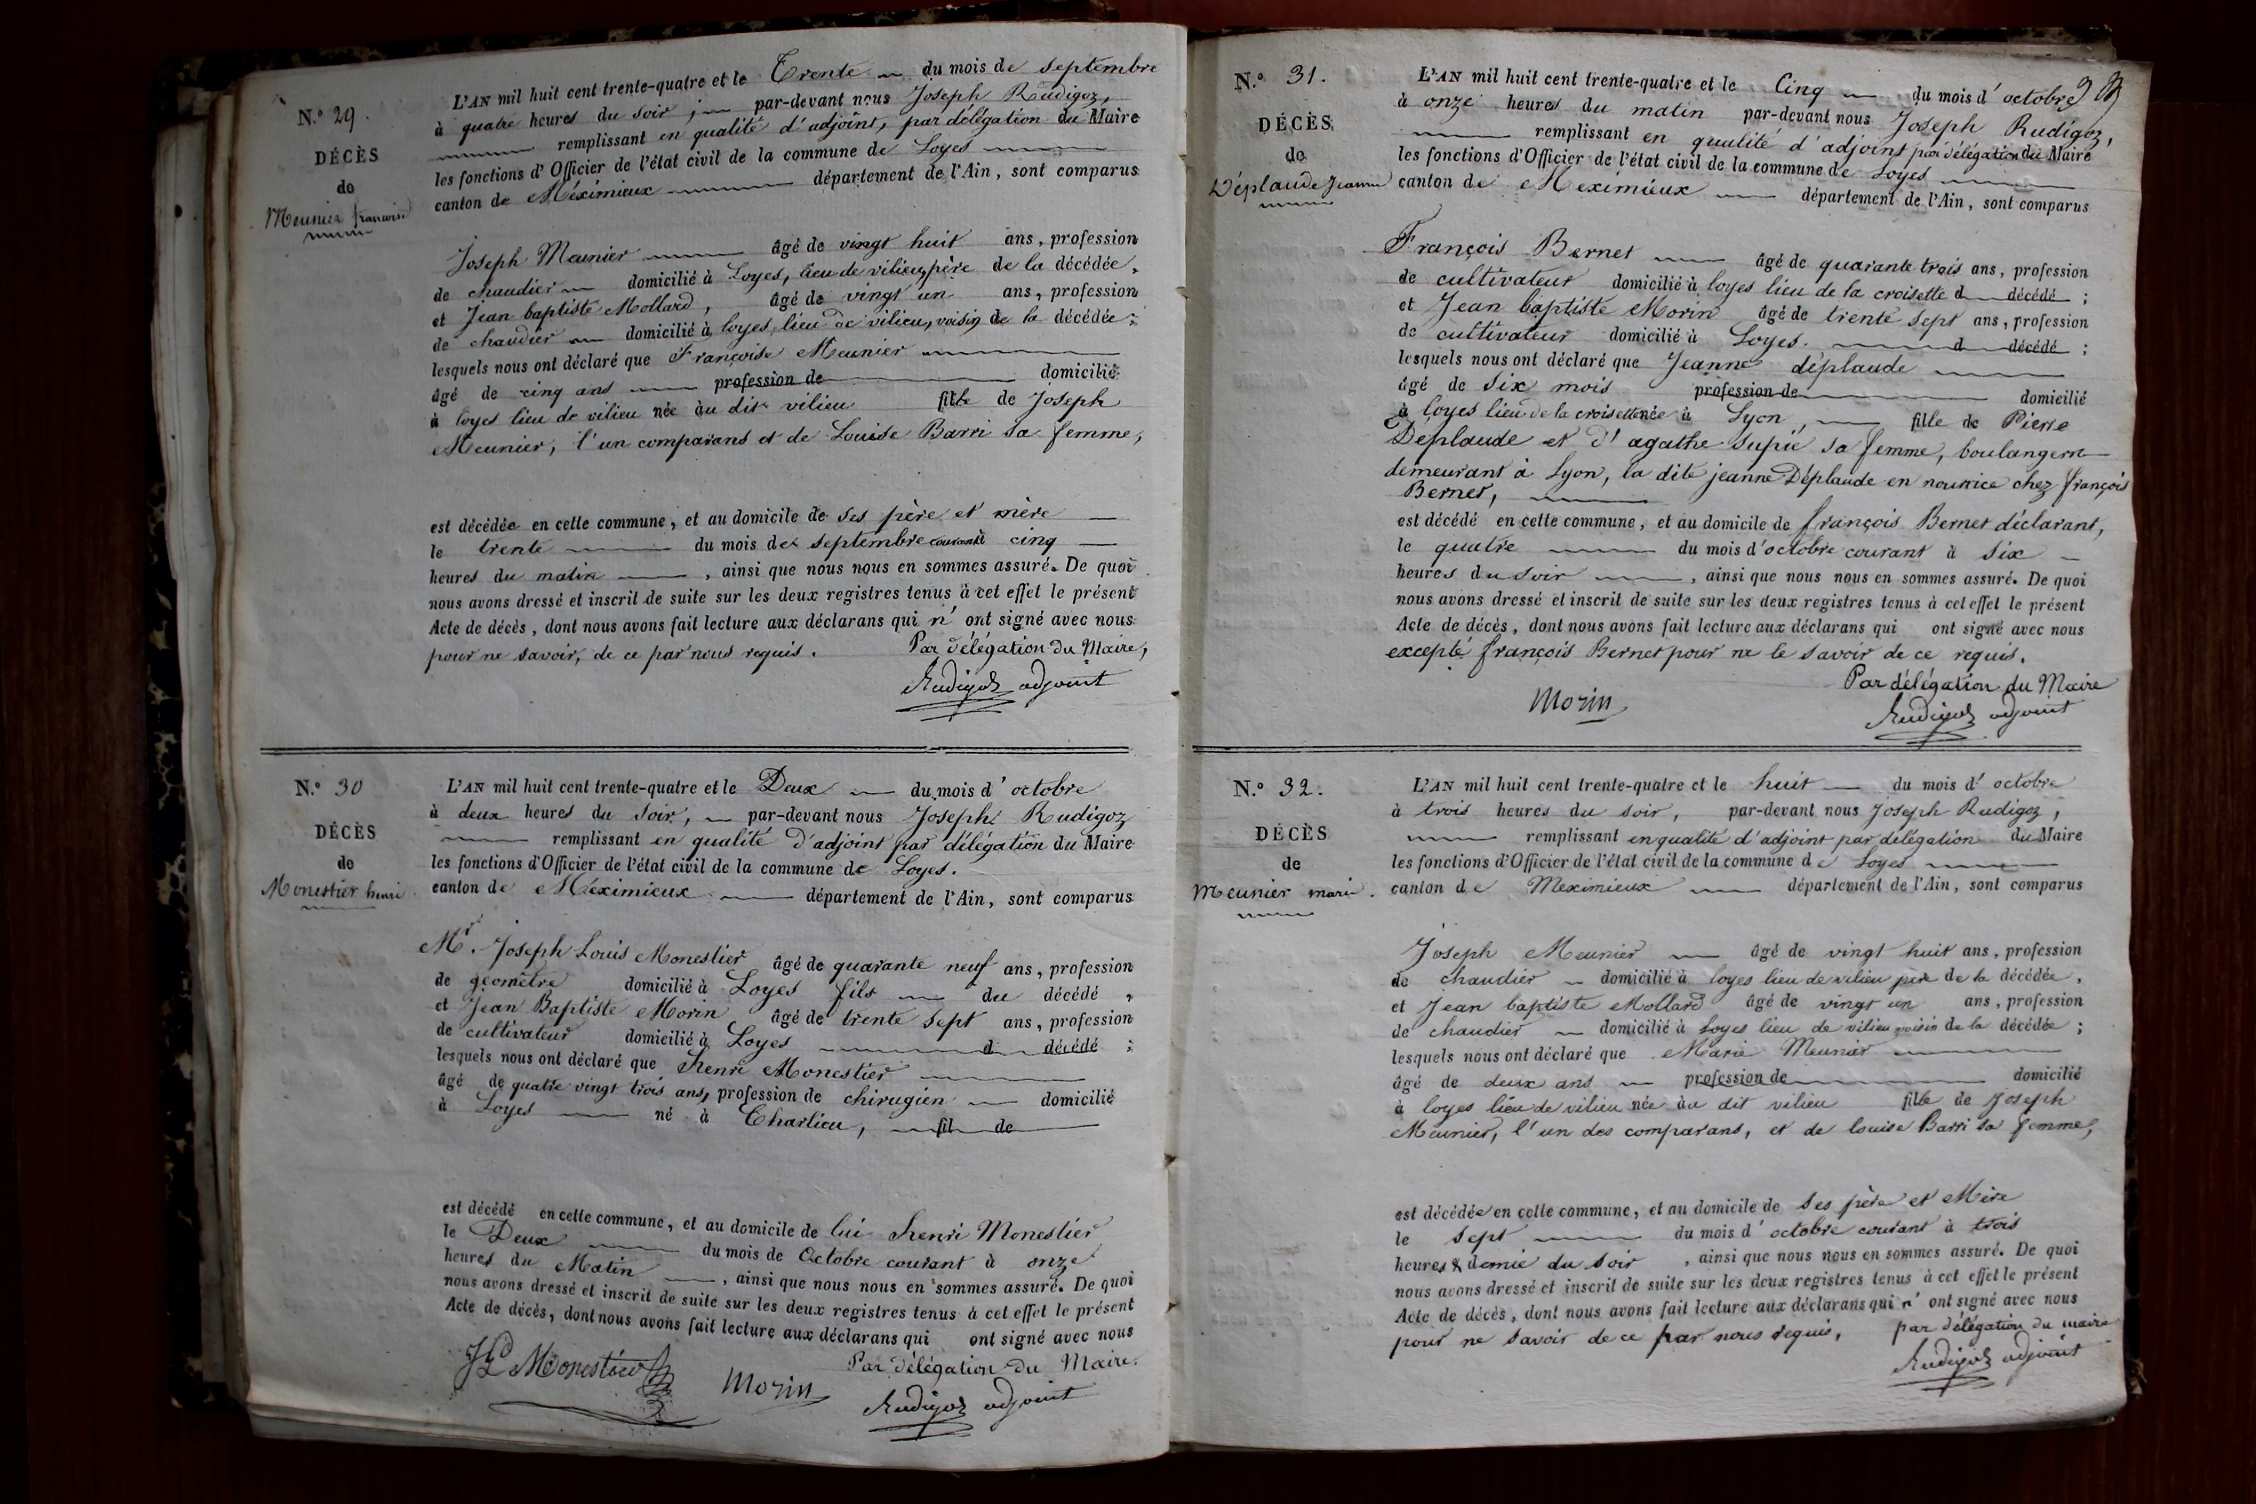 N.° 29.
DÉCÈS
de
Meunier françoise
L'AN mil huit cent trente-quatre et le Trente du mois de septembre
à quatre heures du soir ; par-devant nous Joseph Rudigoz,
remplissant en qualité d'adjoint, par délégation du Maire
les fonctions d'Officier de l'état civil de la commune de Loyes
canton de Méximieux département de l'Ain, sont comparus
Joseph Meunier âgé de vingt huit ans, profession
de chaudier domicilié à Loyes, lieu de vilieu, père de la décédée,
et Jean baptiste Mollard, âgé de vingt un ans, profession
de chaudier domicilié à loyes, lieu de vilieu, voisin de la décédée ;
lesquels nous ont déclaré que Françoise Meunier
âgé de cinq ans profession de domicilié
à loyes lieu de vilieu née au dit vilieu fille de Joseph
Meunier, l'un comparans et de Louise Barri sa femme,
est décédée en cette commune, et au domicile de ses père et mère
le trente du mois de septembre courant à cinq
heures du matin, ainsi que nous nous en sommes assuré. De quoi
nous avons dressé et inscrit de suite sur les deux registres tenus à cet effet le présent
Acte de décès, dont nous avons fait lecture aux déclarans qui n'ont signé avec nous
pour ne savoir, de ce par nous requis. Par délégation du Maire,
Rudigoz adjoint
N.° 30
DÉCÈS
de
Monestier henri
L'AN mil huit cent trente-quatre et le Deux du mois d'octobre
à deux heures du soir, par-devant nous Joseph Rudigoz
remplissant en qualité d'adjoint par délégation du Maire
les fonctions d'Officier de l'état civil de la commune de Loyes.
canton de Méximieux département de l'Ain, sont comparus
Mr. Joseph Louis Monestier âgé de quarante neuf ans, profession
de géomètre domicilié à Loyes fils du décédé,
et Jean Baptiste Morin âgé de trente sept ans, profession
de cultivateur domicilié à Loyes d décédé ;
lesquels nous ont déclaré que henri Monestier
âgé de quatre vingt trois ans, profession de chirugien domicilié
à Loyes né à Charlieu, fil de
est décédé en cette commune, et au domicile de lui henri Monestier
le Deux du mois de Octobre courant à onze
heures du Matin, ainsi que nous nous en sommes assuré. De quoi
nous avons dressé et inscrit de suite sur les deux registres tenus à cet effet le présent
Acte de décès, dont nous avons fait lecture aux déclarans qui ont signé avec nous
Par délégation du Maire.
Monestier Morin Rudigoz adjoint
N.° 31.
DÉCÈS
de
Déplaude Jeanne
L'AN mil huit cent trente-quatre et le Cinq du mois d'octobre
à onze heures du matin par-devant nous Joseph Rudigoz,
remplissant en qualité d'adjoint par délégation du Maire
les fonctions d'Officier de l'état civil de la commune de Loyes
canton de Meximieux département de l'Ain, sont comparus
François Bernet âgé de quarante trois ans, profession
de cultivateur domicilié à loyes lieu de la croisette d décédé ;
et Jean baptiste Morin âgé de trente sept ans, profession
de cultivateur domicilié à Loyes. d décédé ;
lesquels nous ont déclaré que Jeanne déplaude
âgé de six mois profession de domicilié
à loyes lieu de la croisette née à Lyon, fille de Pierre
Déplaude et d'agathe supié sa femme, boulangers
demeurant à Lyon, la dite jeanne Déplaude en nourrice chez françois
Bernet,
est décédé en cette commune, et au domicile de françois Bernet déclarant,
le quatre du mois d'octobre courant à six
heures du soir, ainsi que nous nous en sommes assuré. De quoi
nous avons dressé et inscrit de suite sur les deux registres tenus à cet effet le présent
Acte de décès, dont nous avons fait lecture aux déclarans qui ont signé avec nous
excepté françois Bernet pour ne le savoir de ce requis.
Par délégation du Maire
Morin Rudigoz adjoint
N.° 32.
DÉCÈS
de
Meunier marie.
L'AN mil huit cent trente-quatre et le huit du mois d'octobre
à trois heures du soir, par-devant nous Joseph Rudigoz,
remplissant en qualité d'adjoint par délégation du Maire
les fonctions d'Officier de l'état civil de la commune de Loyes
canton de Meximieux département de l'Ain, sont comparus
Joseph Meunier âgé de vingt huit ans, profession
de chaudier domicilié à loyes lieu de vilieu père de la décédée,
et Jean baptiste Mollard âgé de vingt un ans, profession
de chaudier domicilié à Loyes lieu de vilieu voisin de la décédée ;
lesquels nous ont déclaré que Marie Meunier
âgé de deux ans profession de domicilié
à loyes lieu de vilieu née au dit vilieu fille de Joseph
Meunier, l'un des comparans, et de louise Barri sa femme,
est décédée en cette commune, et au domicile de ses père et Mère
le sept du mois d'octobre courant à trois
heures & demie du soir, ainsi que nous nous en sommes assuré. De quoi
nous avons dressé et inscrit de suite sur les deux registres tenus à cet effet le présent
Acte de décès, dont nous avons fait lecture aux déclarans qui n'ont signé avec nous
pour ne savoir de ce par nous requis, par délégation du maire
Rudigoz adjoint